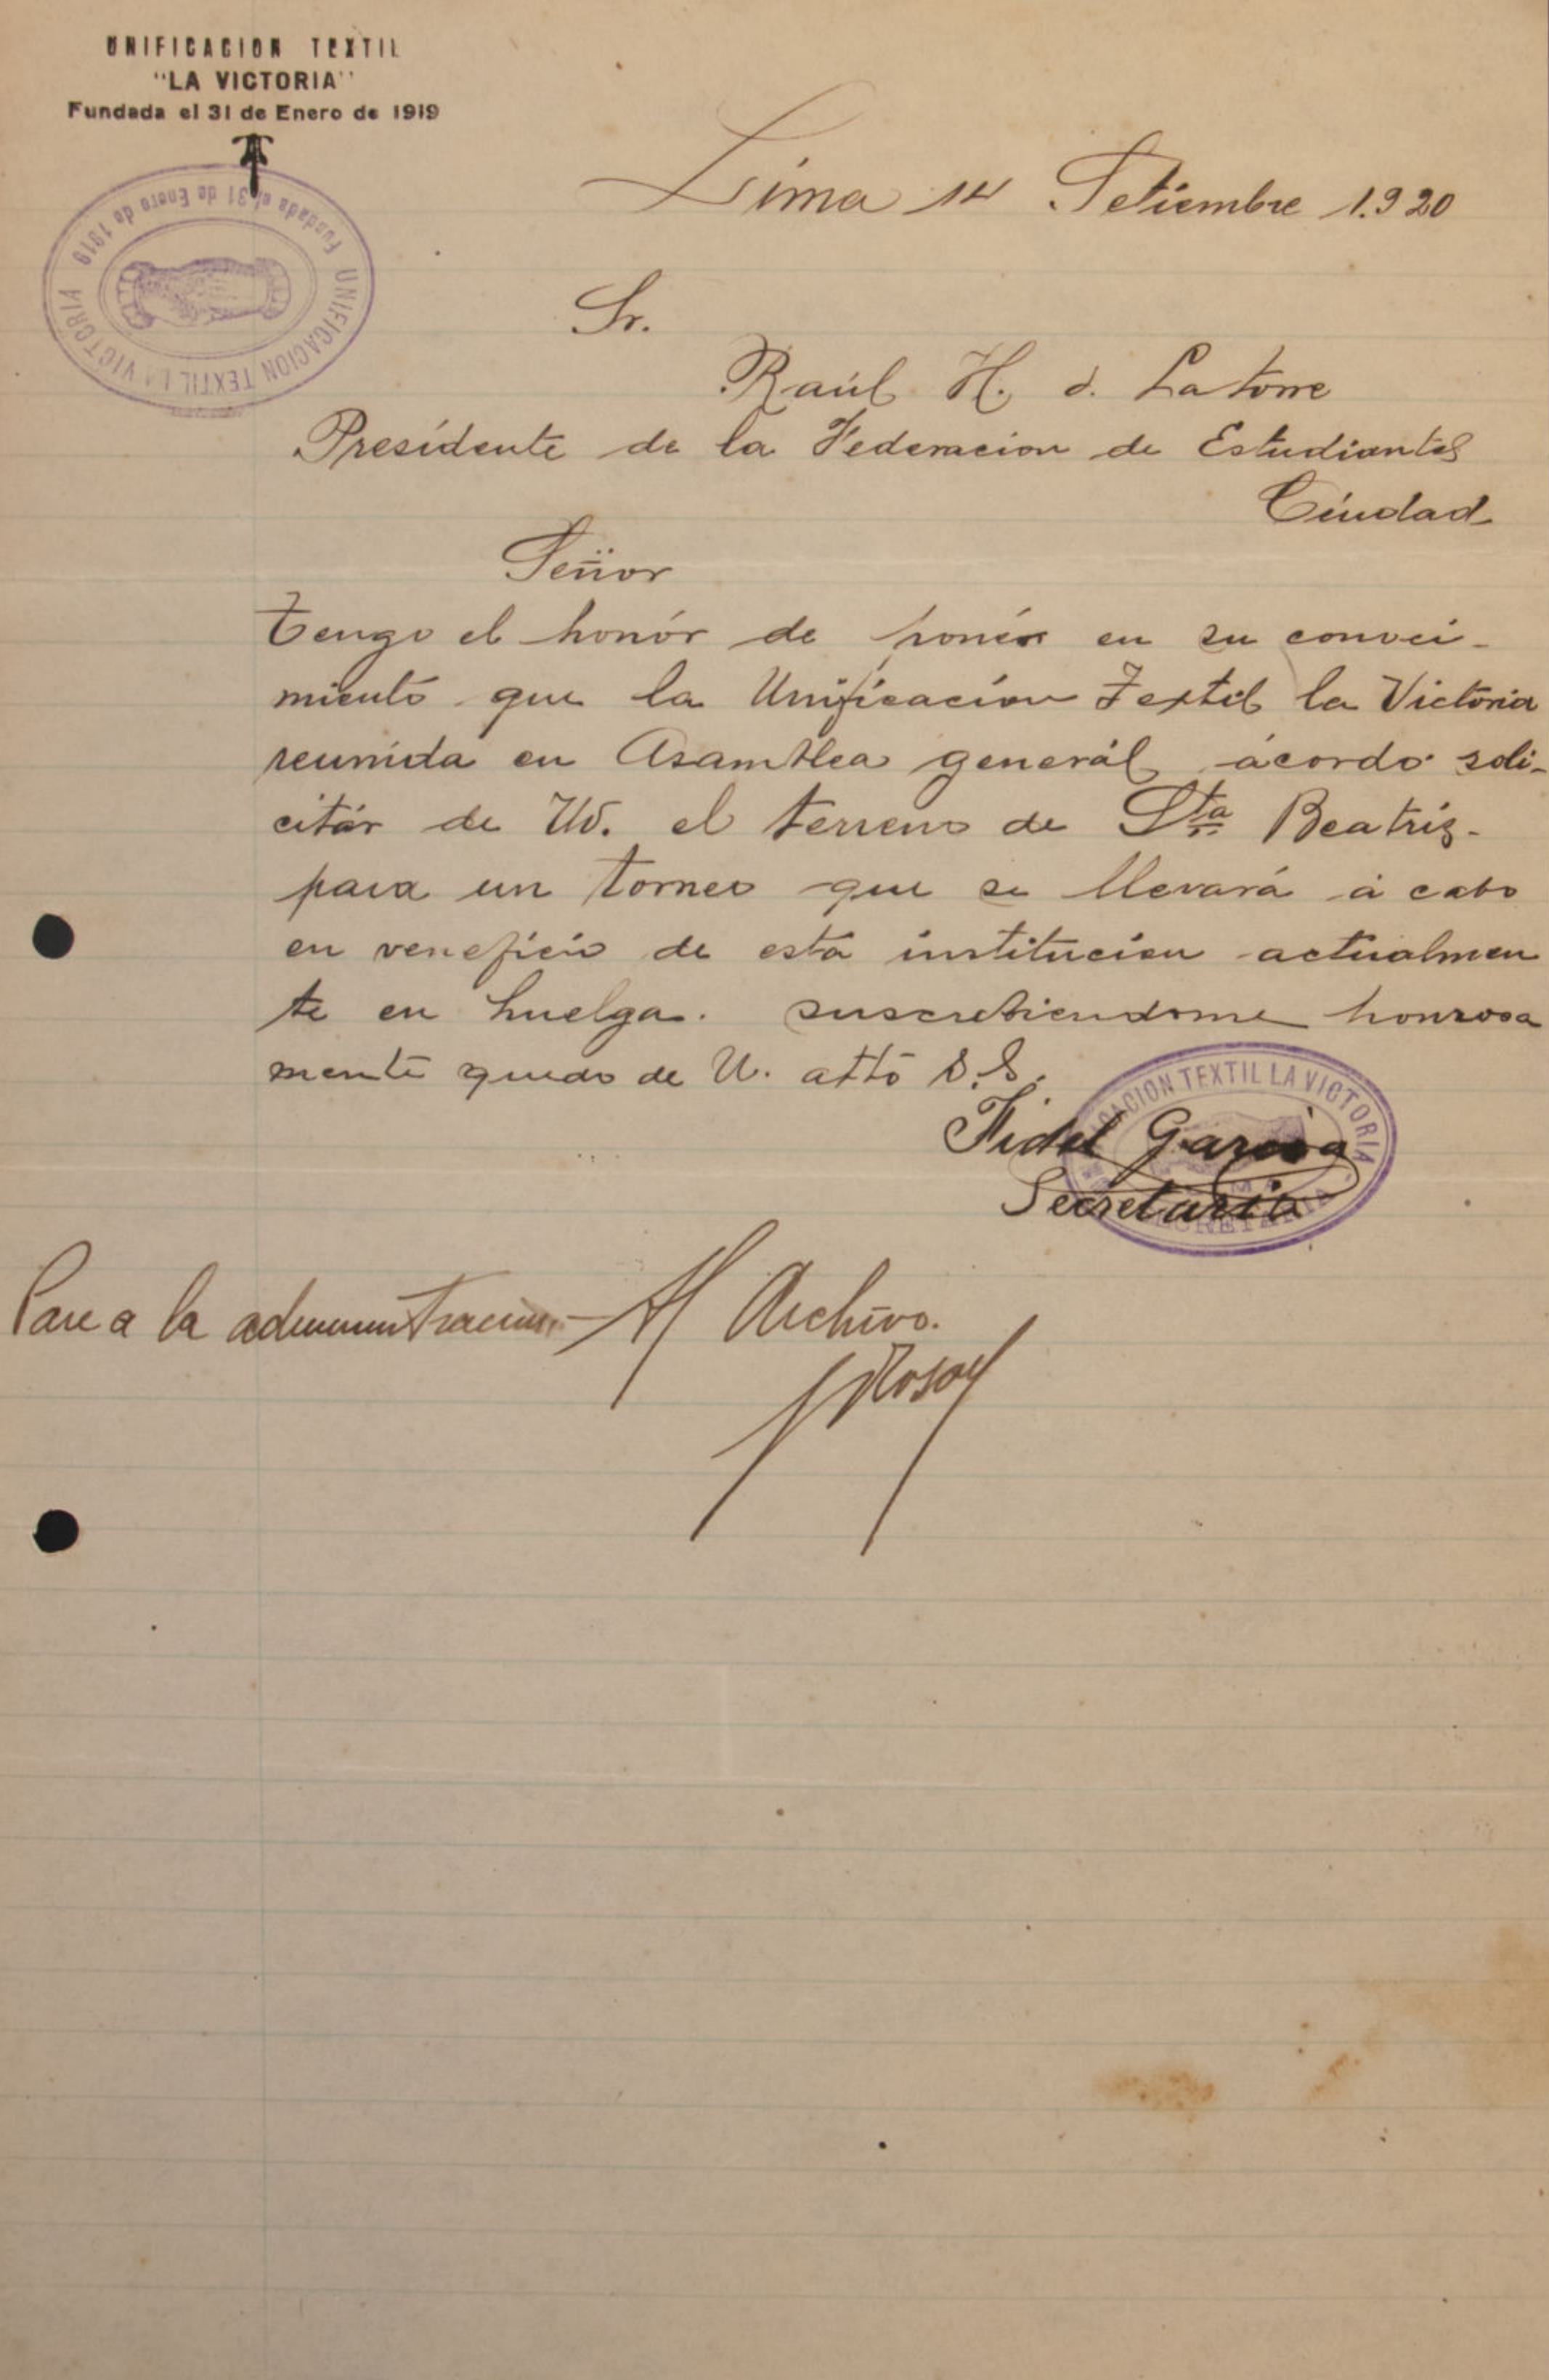 UNIFICACION TEXTIL
"LA VICTORIA"
Fundada el 31 de Enero de 1919
UNIFICACION TEXTIL LA VICTORIA
Fundada el 31 de Enero de 1919
Lima 14 Setiembre 1.920
Sr.
Raúl H. d. La torre
Presidente de la Federacion de Estudiantes
Ciudad
Señor
Tengo el honór de ponér en su conoci-
miento que la Unificacion Textil la Victoria
reunida en Asamblea generál acordo soli-
citár de Ud. el terreno de Sta Beatriz-
para un torneo que se llevará á cabo
en veneficio de esta institucion actualmen
te en huelga. suscribiendome honrosa
mente quedo de U. atto S.S.
UNIFICACION TEXTIL LA VICTORIA
SECRETARIA
Fidel Garcia
Secretario
Pase a la administracion - Al Archivo.